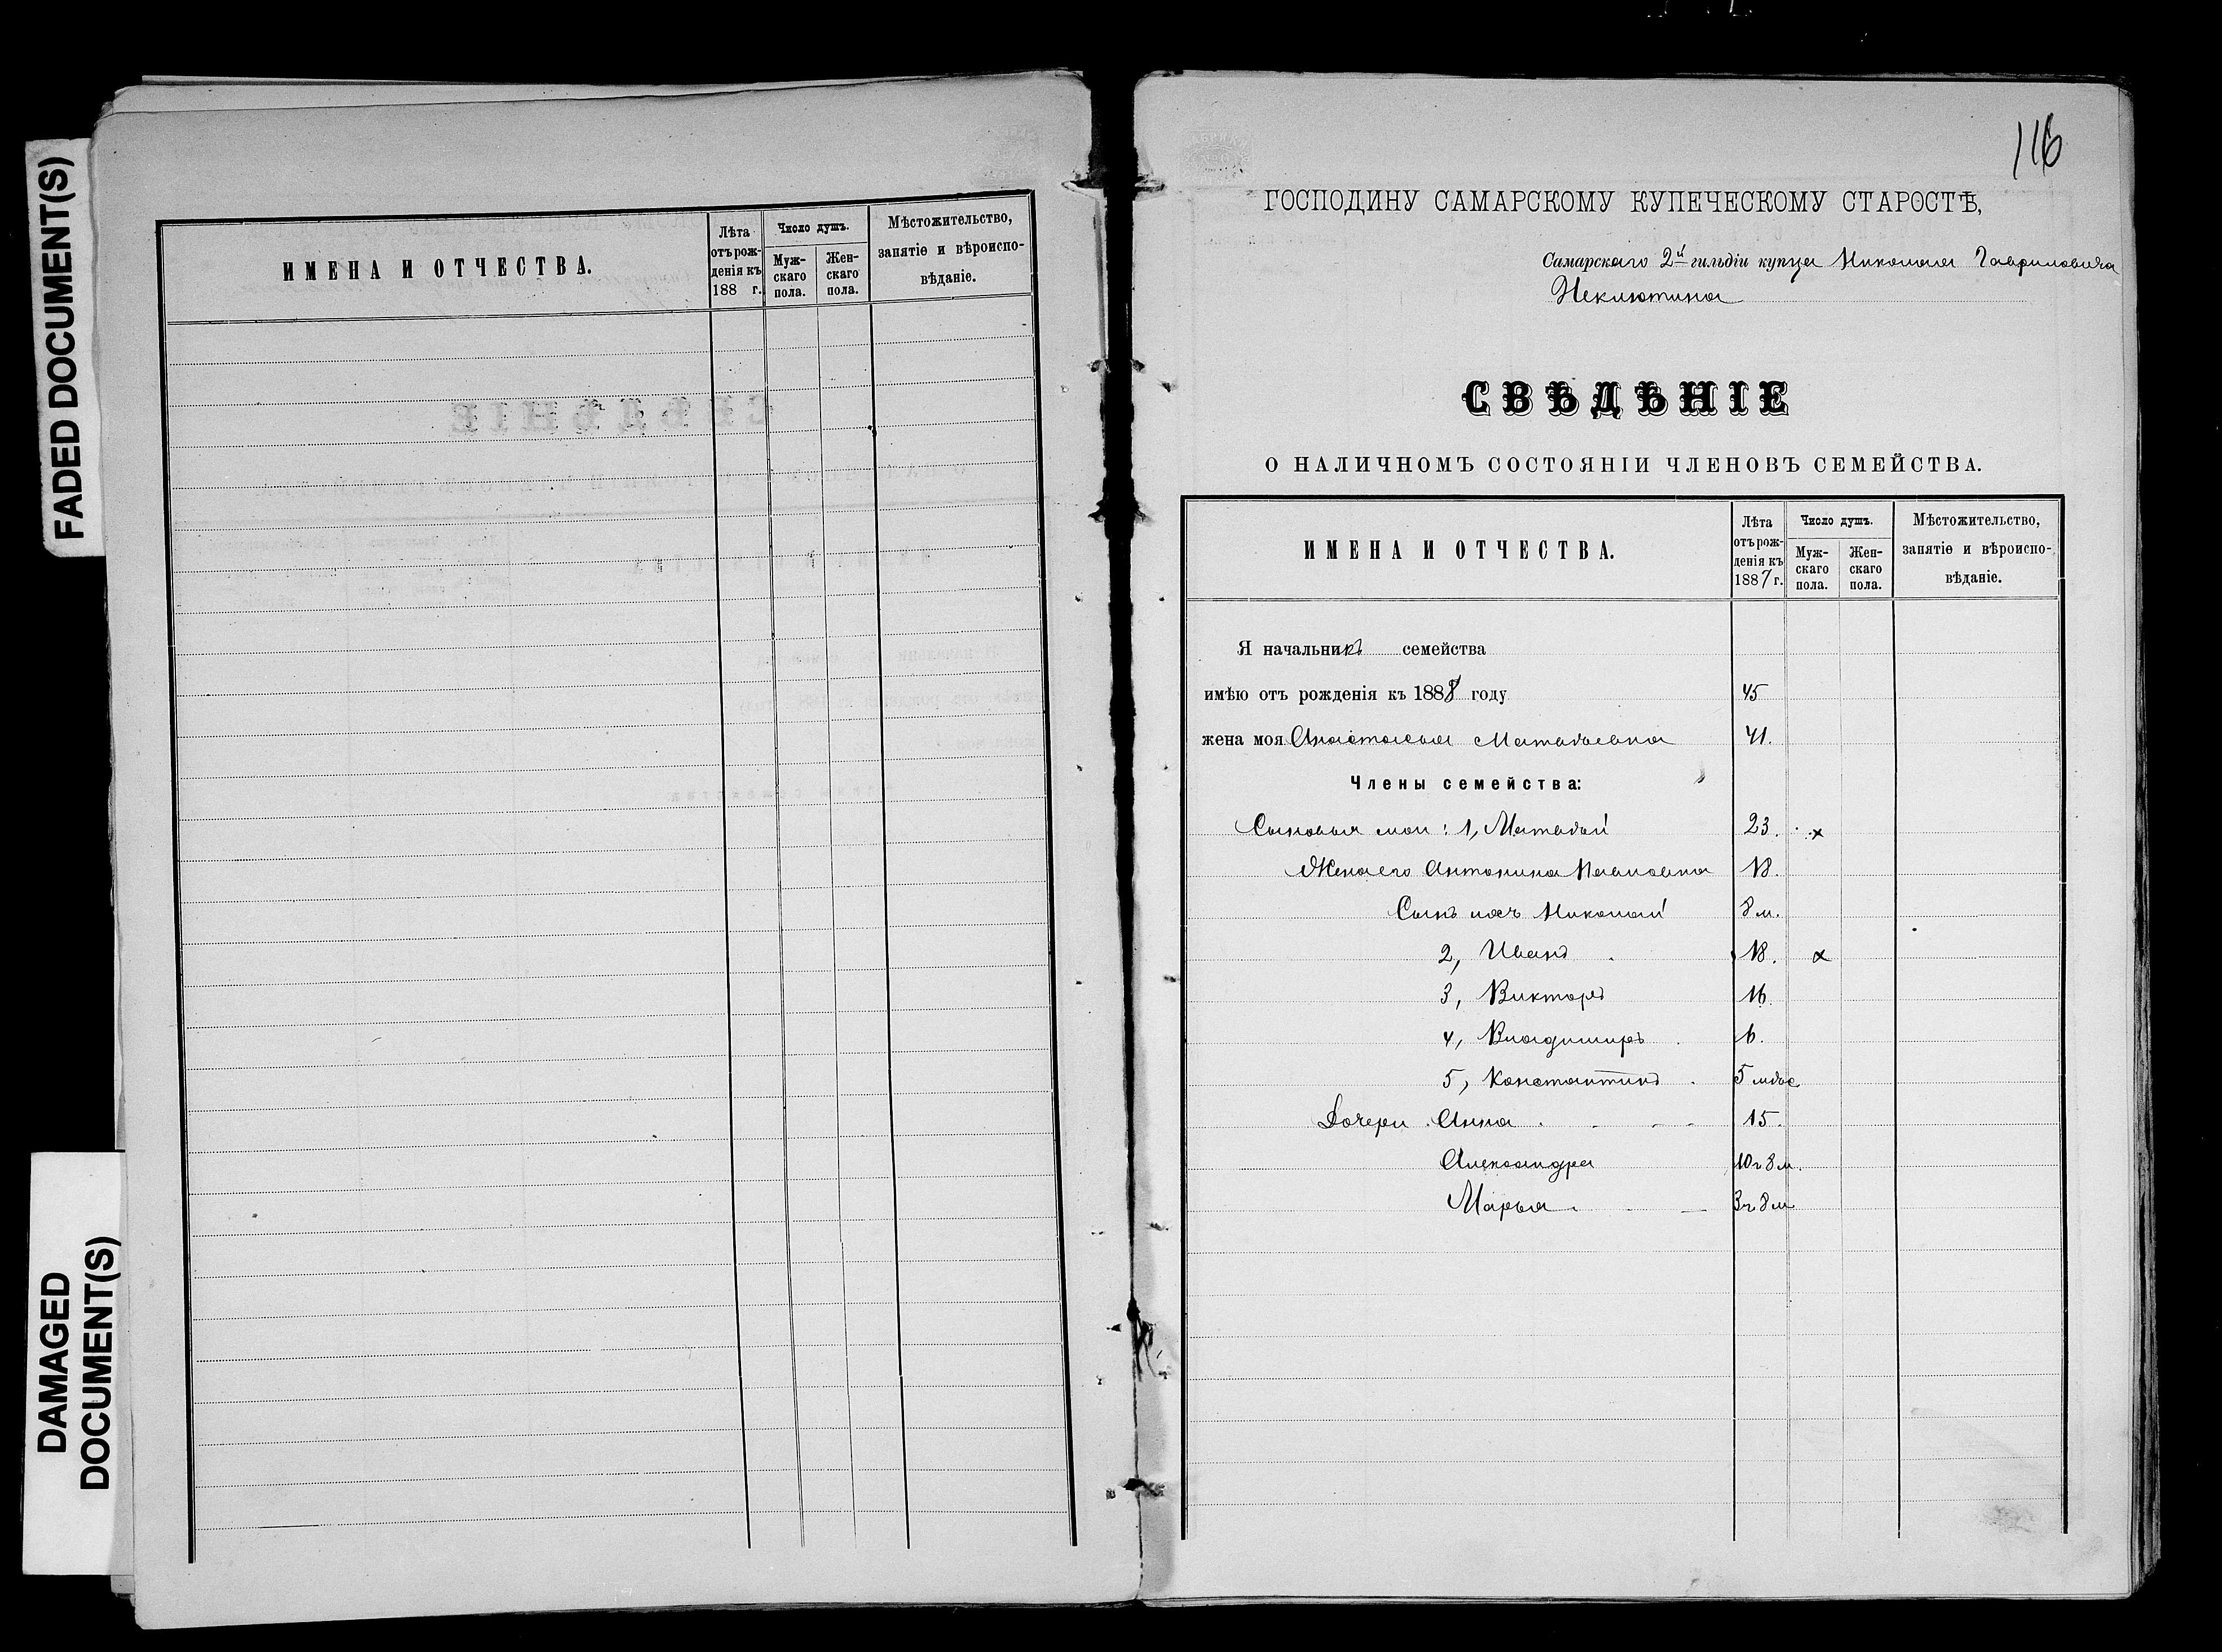 FADED DOCUMENT(S)
DAMAGED
DOCUMENT(S)
ИМЕНА И ОТЧЕСТВА.
Лѣта
отъ рож-
денія къ
188 г.
Число душъ.
Муж-
скаго
пола.
Жен-
скаго
пола.
Мѣстожительство,
занятіе и вѣроиспо-
вѣданіе.
116
ГОСПОДИНУ САМАРСКОМУ КУПЕЧЕСКОМУ СТАРОСТѢ,
Самарскаго 2й гильдіи купца Николая Гавриловича
Неклютина
СВѢДѢНІЕ
О НАЛИЧНОМЪ СОСТОЯНІИ ЧЛЕНОВЪ СЕМЕЙСТВА.
ИМЕНА И ОТЧЕСТВА.
Лѣта
отъ рож-
денія къ
1887 г.
Число душъ.
Муж-
скаго
пола.
Жен-
скаго
пола.
Мѣстожительство,
занятіе и вѣроиспо-
вѣданіе.
Я начальникъ семейства
имѣю отъ рожденія къ 1888 году 45
жена моя Анастасья Матвѣевна 41.
Члены семейства:
Сыновья мои: 1, Матвѣй 23. х
Жена его Антонина Павловна 18.
Сынъ ихъ Николай 8 м.
2, Иванъ 18. х
3, Викторъ 16.
4, Владимиръ 6.
5, Константинъ 5 мѣс
Дочери Анна 15.
Александра 10 г 8 м.
Марья 3 г 8 м